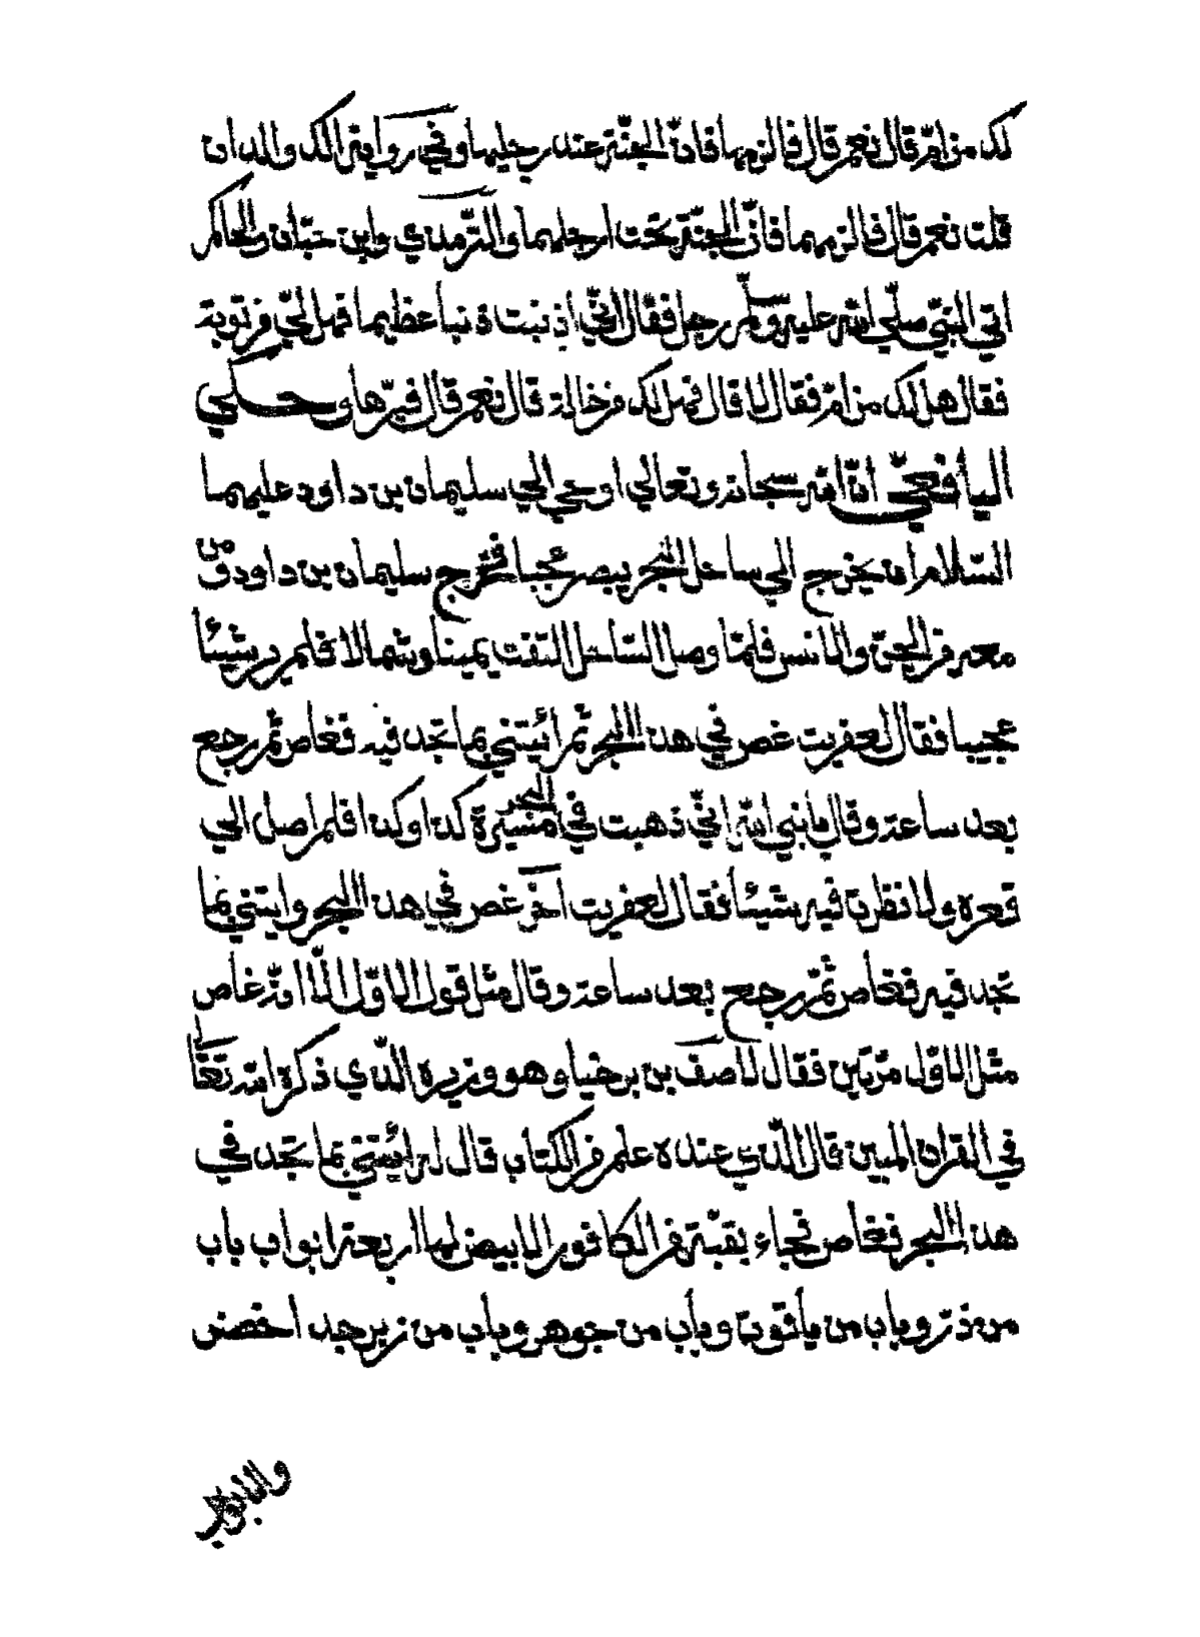 لك من امّ قال نعم قال فالزمها فانّ الجنّة عند رجليها وفي رواية الك والدان
قلت نعم قال فالزمهما فانّ الجنّة تحت ارجلهما والتّرمذي وابن حبّان والحاكم
اتي النبّي صلّي الله عليه وسلّم رجل فقال انّي اذنبت ذنبا عظيما فهل لّي من توبة
فقال هل لك من امّ فقال لا قال فهل لك من خالة قال نعم قال فبرّها وحكي
اليافعيّ انّ الله سبحانه وتعالي اوحي الي سليمان بن داود عليهما
السّلام ان يخرج الي ساحل البحر يبصر عجبا فخرج سليمان بن داود ومن
معه من الجنّ والانس فلمّا وصل السّاحل التفت يمينا وشمالا فلم ير شيئا
عجيبا فقال لعفريت غص في هذا البحر ثم ائيتني بما تجد فيه فغاص ثم رجع
بعد ساعة وقال يا نبي الله انّي ذهبت في البحر مسيرة كذا وكذا فلم اصل الي
قعره ولا نظرت فيه شيئا فقال لعفريت آخر غص في هذا البحر وايتني بما
تجد فيه فغاص ثمّ رجع بعد ساعة وقال مثل قول الاوّل الّا انّه غاص
مثل الاوّل مرّتين فقال لاصف بن برخيا وهو وزيره الّذي ذكره الله تعالى
في القران المبين قال الّذي عنده علم من الكتاب قال له ائيتني بما تجد في
هذا البحر فغاص فجاء بقبّة من الكافور الابيض لها اربعة ابواب باب
من درّ وباب من ياقوت وباب من جوهر وباب من زبرجد اخضر
والابواب